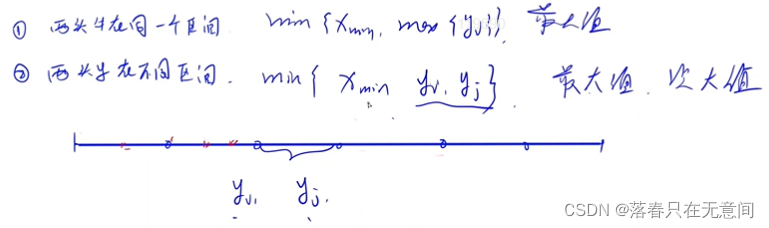 ① 两头牛在同一个区间 min {xmin, max {yi}} 最大值
② 两头牛在不同区间. min{ xmin yi, yj } 最大值. 次大值
yi, yj.
CSDN @落春只在无意间